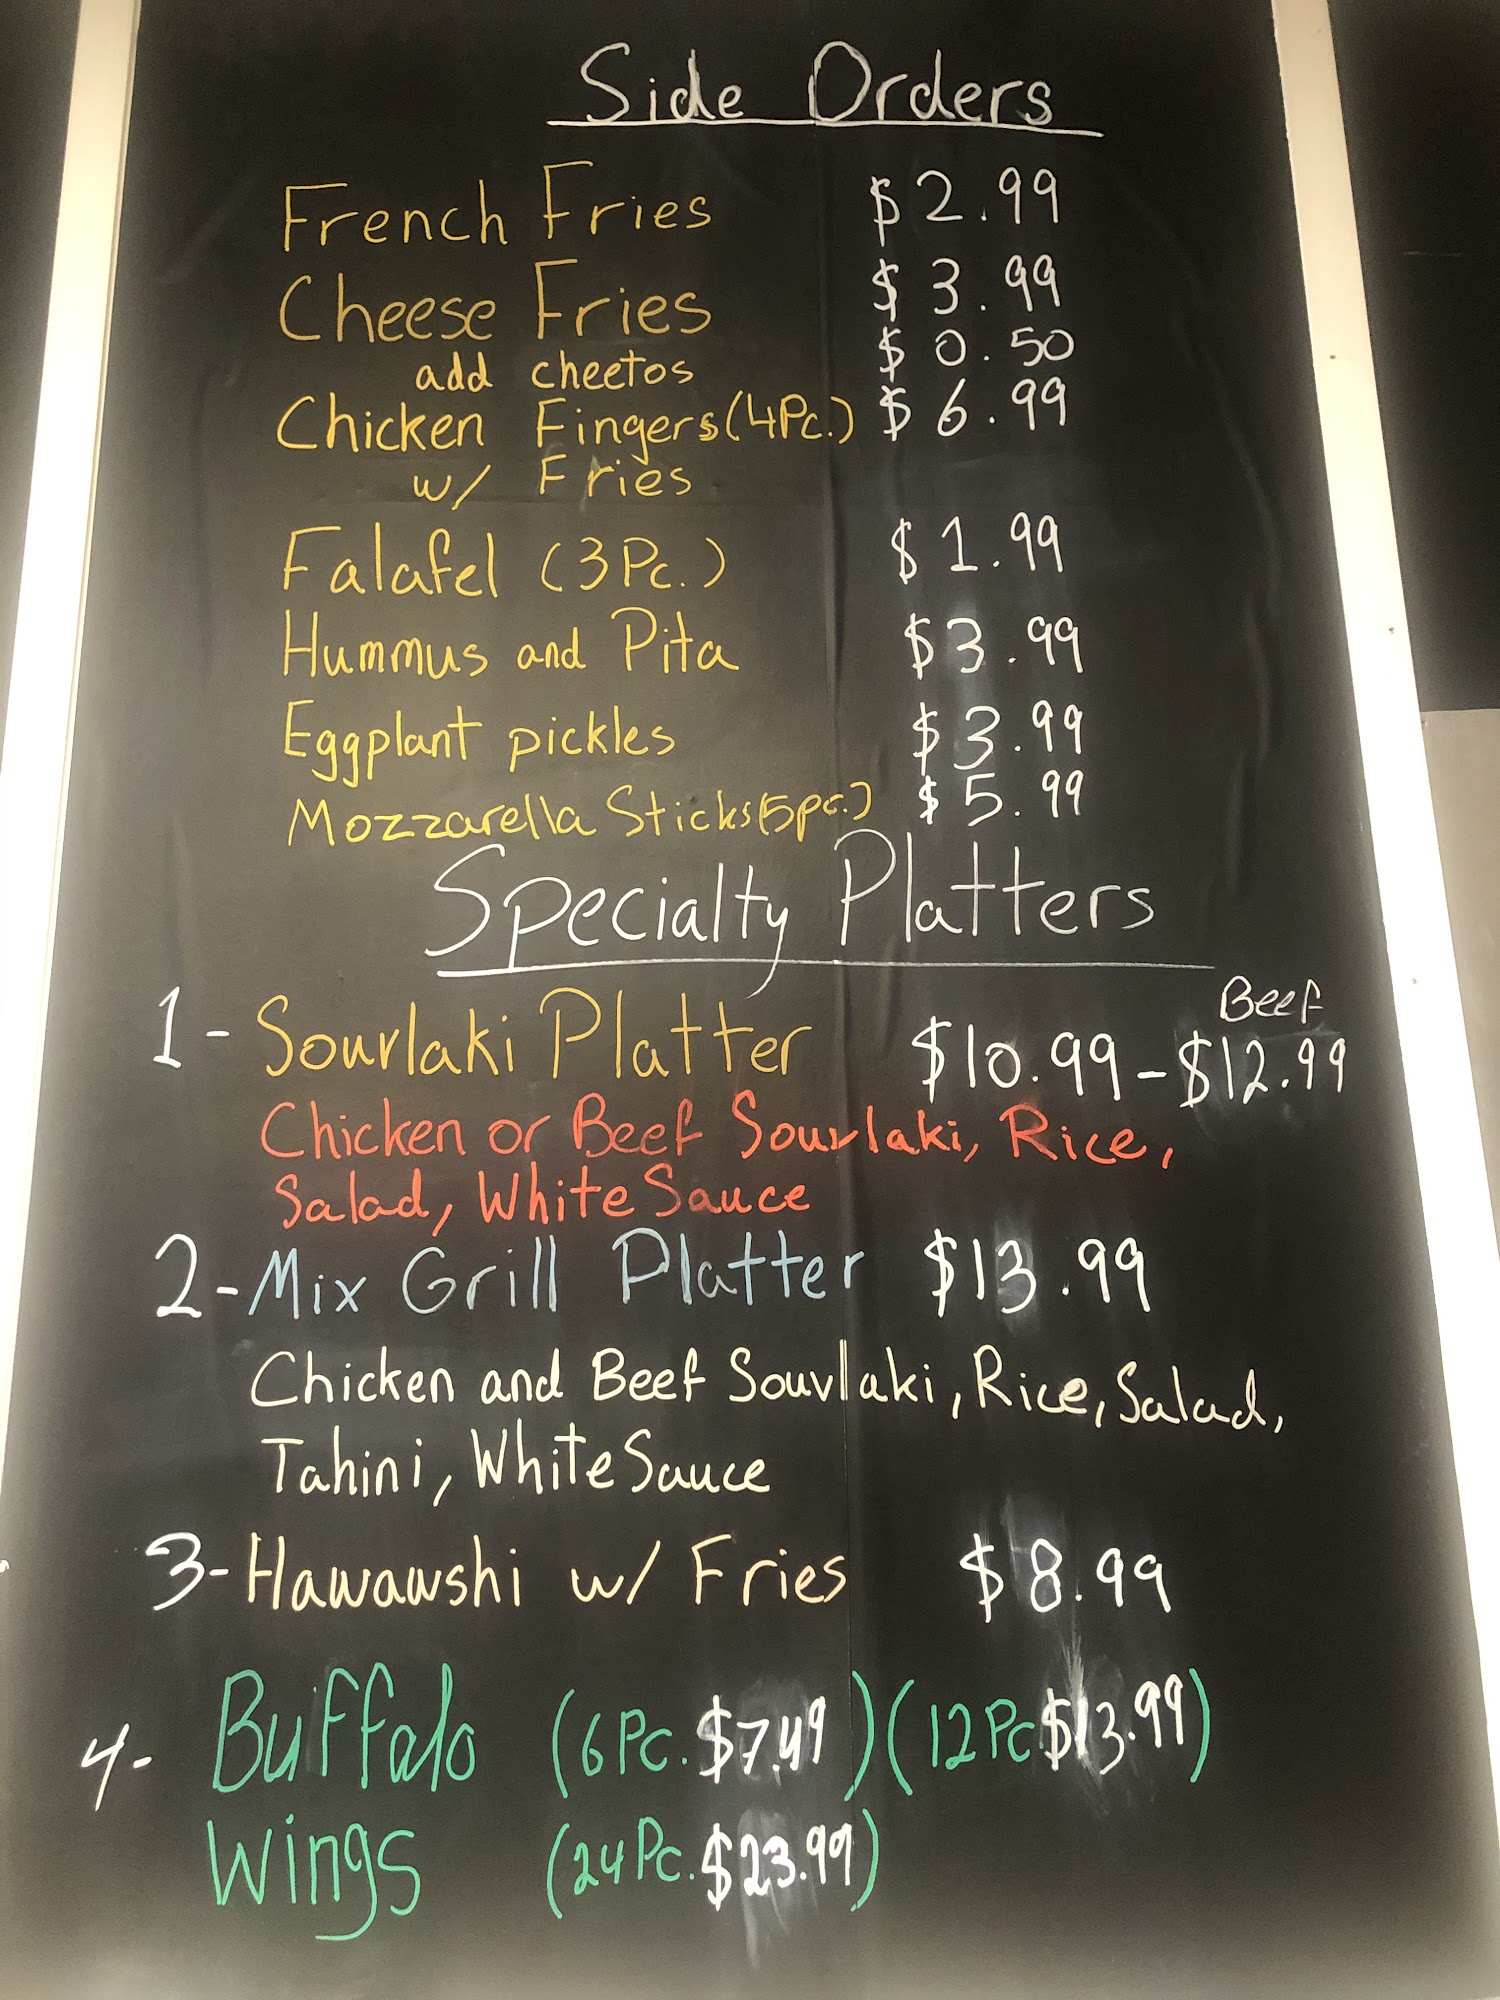 Side Orders
French Fries $2.99
Cheese Fries $3.99
add cheetos $0.50
Chicken Fingers (4Pc.) $6.99
w/ Fries
Falafel (3Pc.) $1.99
Hummus and Pita $3.99
Eggplant pickles $3.99
Mozzarella Sticks (5pc.) $5.99
Specialty Platters
Beef
1- Sourlaki Platter $10.99 - $12.99
Chicken or Beef Sourlaki, Rice,
Salad, White Sauce
2- Mix Grill Platter $13.99
Chicken and Beef Souvlaki, Rice, Salad,
Tahini, White Sauce
3- Hawawshi w/ Fries $8.99
4- Buffalo (6Pc. $7.49) (12Pc. $13.99)
Wings (24Pc. $23.99)